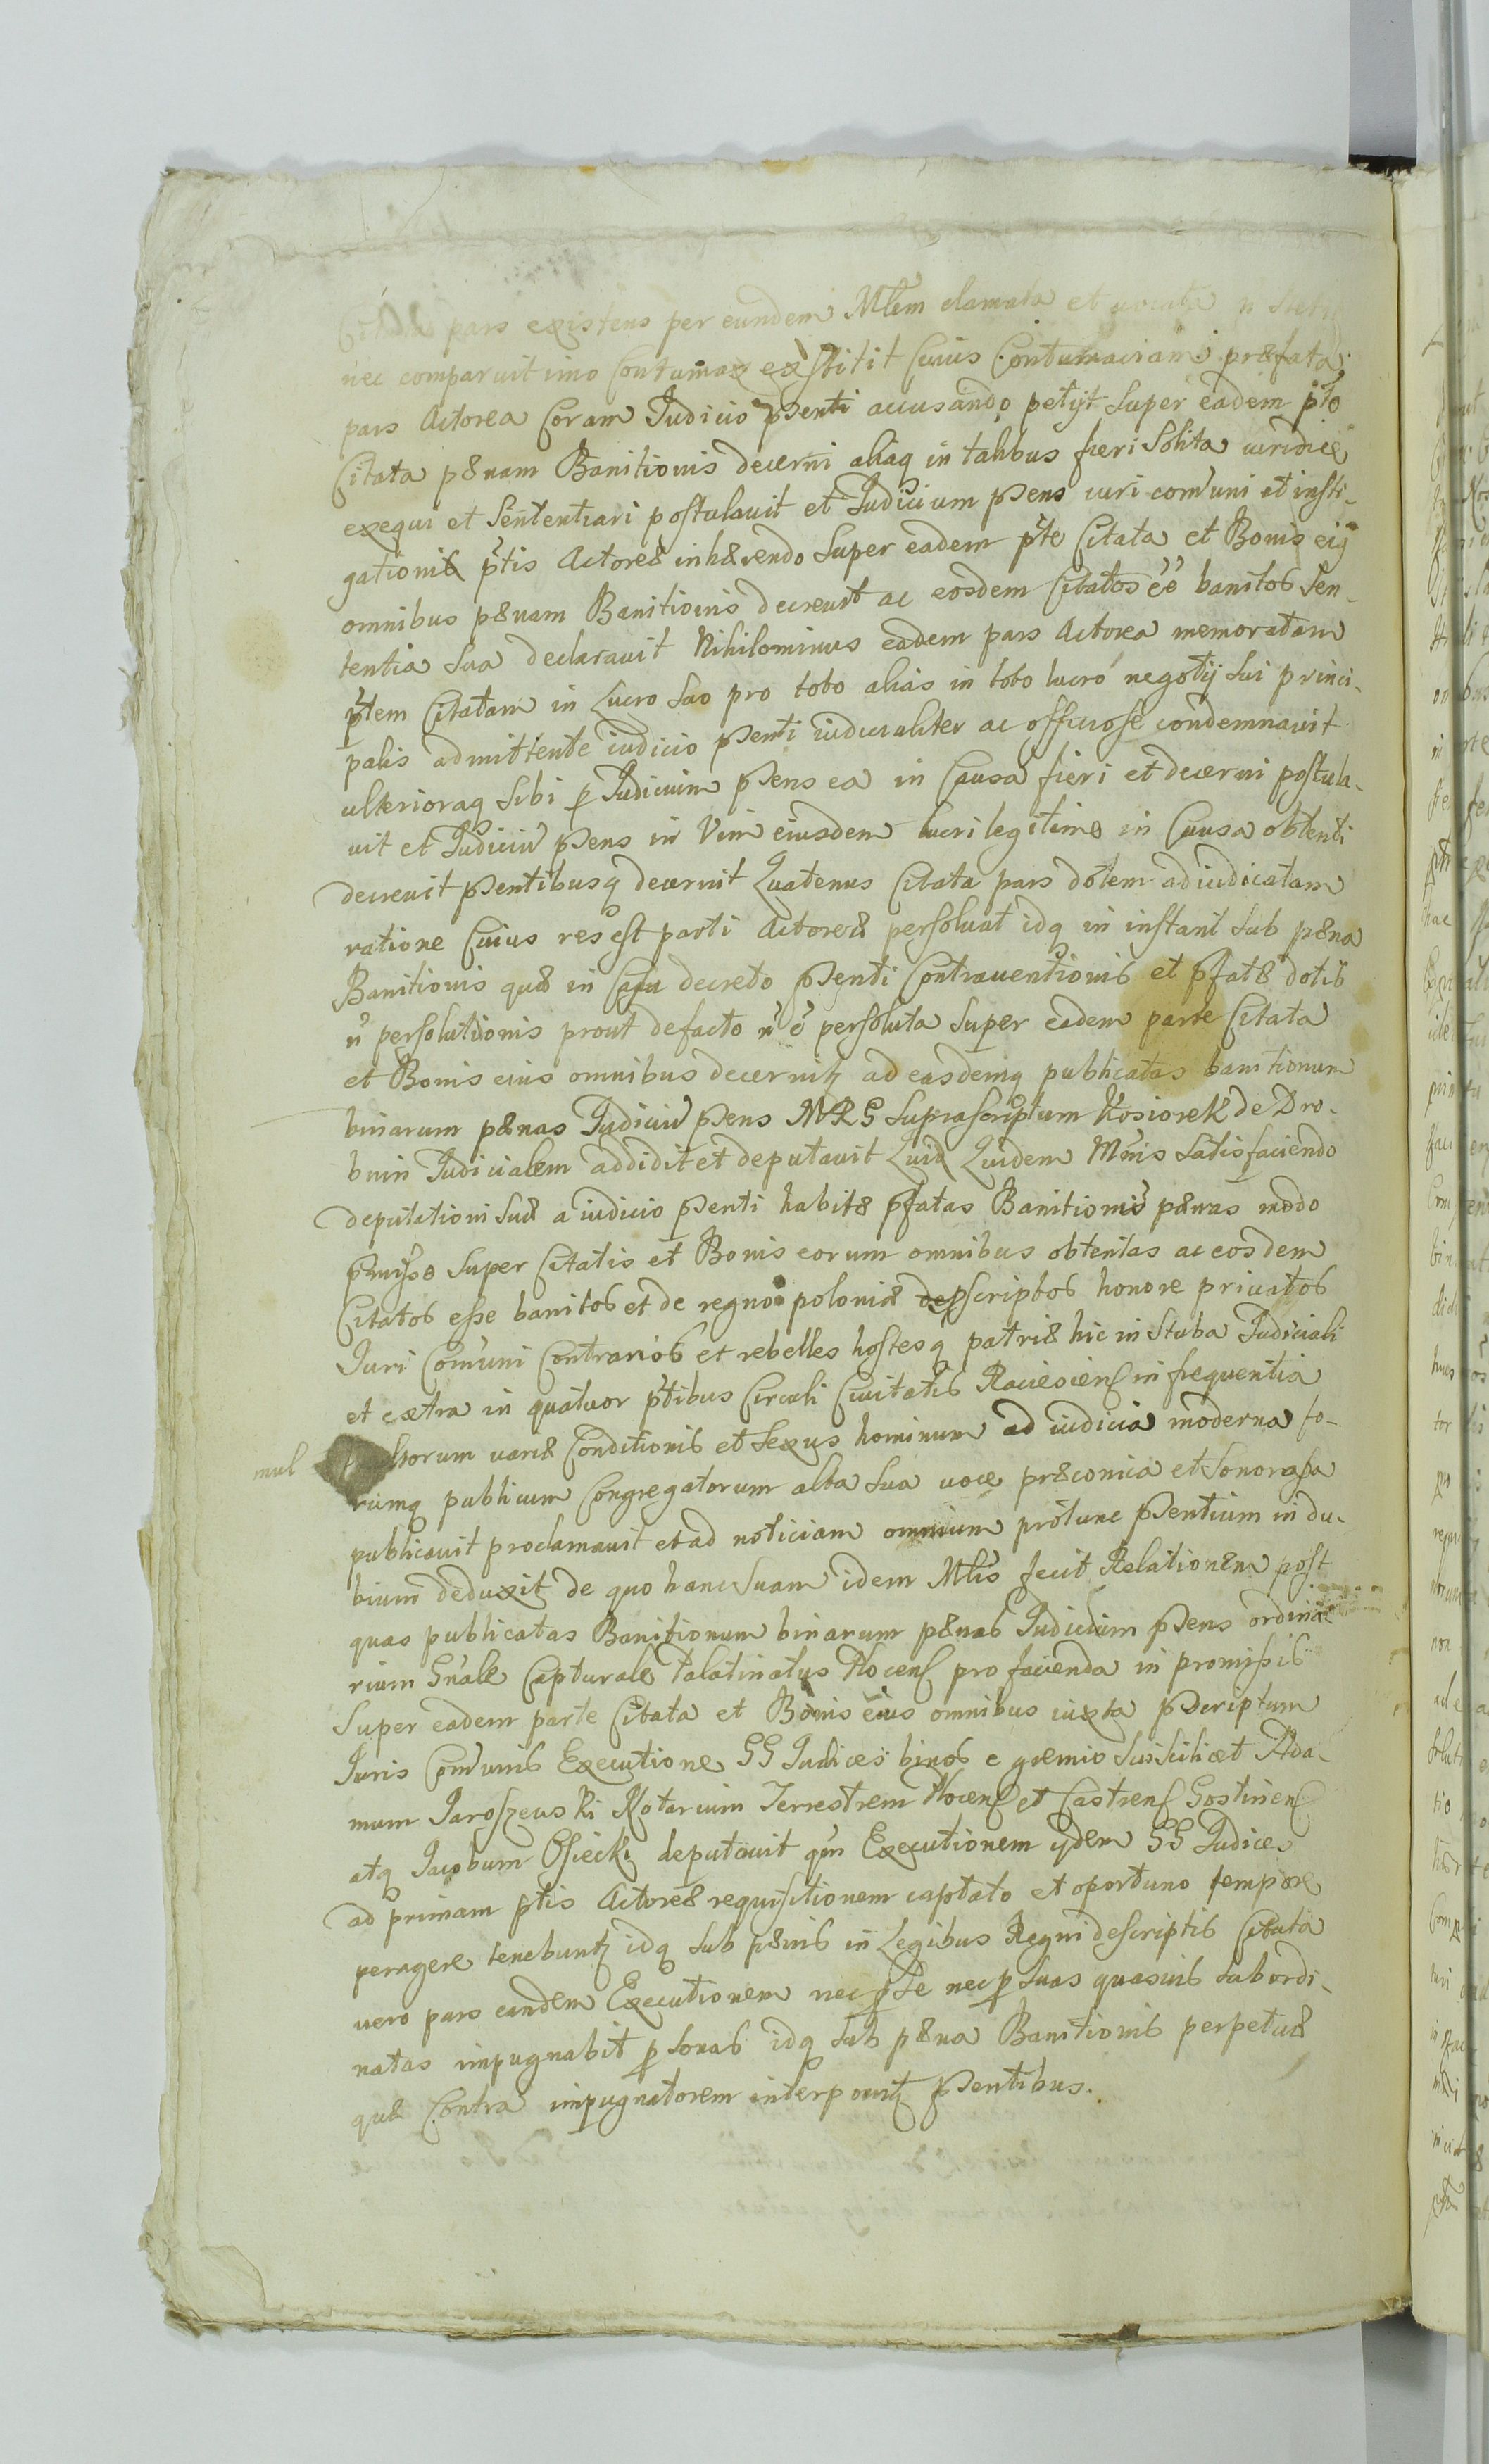 Citata pars existens per eundem Mlem clamata et vocata n stetit
nec comparuit imo Contumax exstitit Cuius Contumaciam præfata
pars Actorea Coram Iudicio pnti accusando petijt super eadem pte
Citata pænam Banitionis decerni aliaq in talibus fieri solita iuridice
exequi et sententiari postulauit et Iudicium pns iuri com̃uni et insti-
gationis ptis Actoreæ inhærendo super eadem pte Citata et Bonis eij
omnibus pænam Banitionis decreuit ac eosdem Citatos ee banitos sen-
tentia sua declarauit Nihilominus eadem pars Actorea memoratam
ptem Citatam in Lucro suo pro toto alias in toto lucro negotij sui princi-
palis admittente iudicio pnti iudicialiter ac officiose condemnauit
ulterioraq sibi p Iudicium pns ea in Causa fieri et decerni postula-
uit et Iudiciu pns in Vim eiusdem lucri legitime in Causa obtenti
decreuit pntibusq decernit Quatenus Citata pars dotem adiudicatam
ratione Cuius res est parti Actoreæ persoluat idq in instant sub pæna
Banitionis quæ in Casu decreto pnti Contrauentionis et pfatæ dotis
n persolutionis prout defacto n e persoluta super eadem parte Citata
et Bonis eius omnibus decernitz ad easdemq publicatas banitionum
binarum pænas Iudiciu pns MRG suprascriptum Kosiorek de Dro-
bnin Iudicialem addidit et deputauit Quid Quidem Mnis satisfaciendo
deputationi suæ a iudicio pnti habitæ pfatas Banitionis pænas modo
pmisso super Citatis et Bonis eorum omnibus obtentas ac eosdem
Citatos esse banitos et de regno poloniæ pscriptos honore priuatos
Iuri Com̃uni Contrarios et rebelles hostesq patriæ hic in stuba Iudiciali
et extra in quatuor ptibus Circuli Ciuitatis Raciesciens in frequentia
mul torum uariæ Conditionis et sexus hominum ad iudicia moderna fo-
rumq publicum Congregatorum alta sua uoce præconica et sonorosa
publicauit proclamauit et ad noticiam omnium protunc pntium in du-
bium deduxit de quo hanc suam idem Mlis fecit Relationem post
quas publicatas Banitionum binarum pænas Iudicium pns ordina-
rium Gnale Capturale Palatinatus Plocens pro facienda in præmissis
super eadem parte Citata et Bonis eius omnibus iuxta pscriptum
Iuris Com̃unis Executione GG Iudices binos e gremio sui scilicet Ada-
mum Jaroszewski Notarium Terrestrem Plocens et Castrens Gostinens
atq Jacobum Osiecki deputauit qm Executionem ijdem GG Iudices
ad primam ptis Actoreæ requisitionem captato et oportuno tempore
peragere tenebuntz idq sub pænis in Legibus Regni descriptis Citata
uero pars eandem Executionem nec p se nec p suas quasuis subordi-
natas impugnabit p sonas idq sub pæna Banitionis perpetuæ
quæ Contra impugnatorem interponitz pntibus.